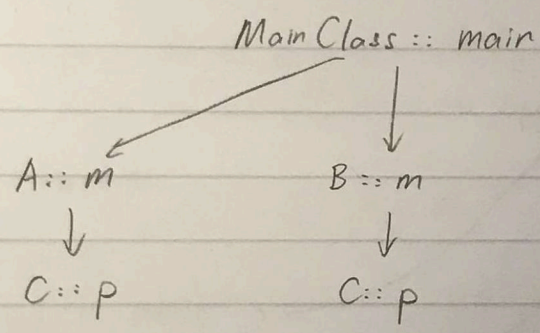 MainClass :: main
A :: m B :: m
C :: p C :: p